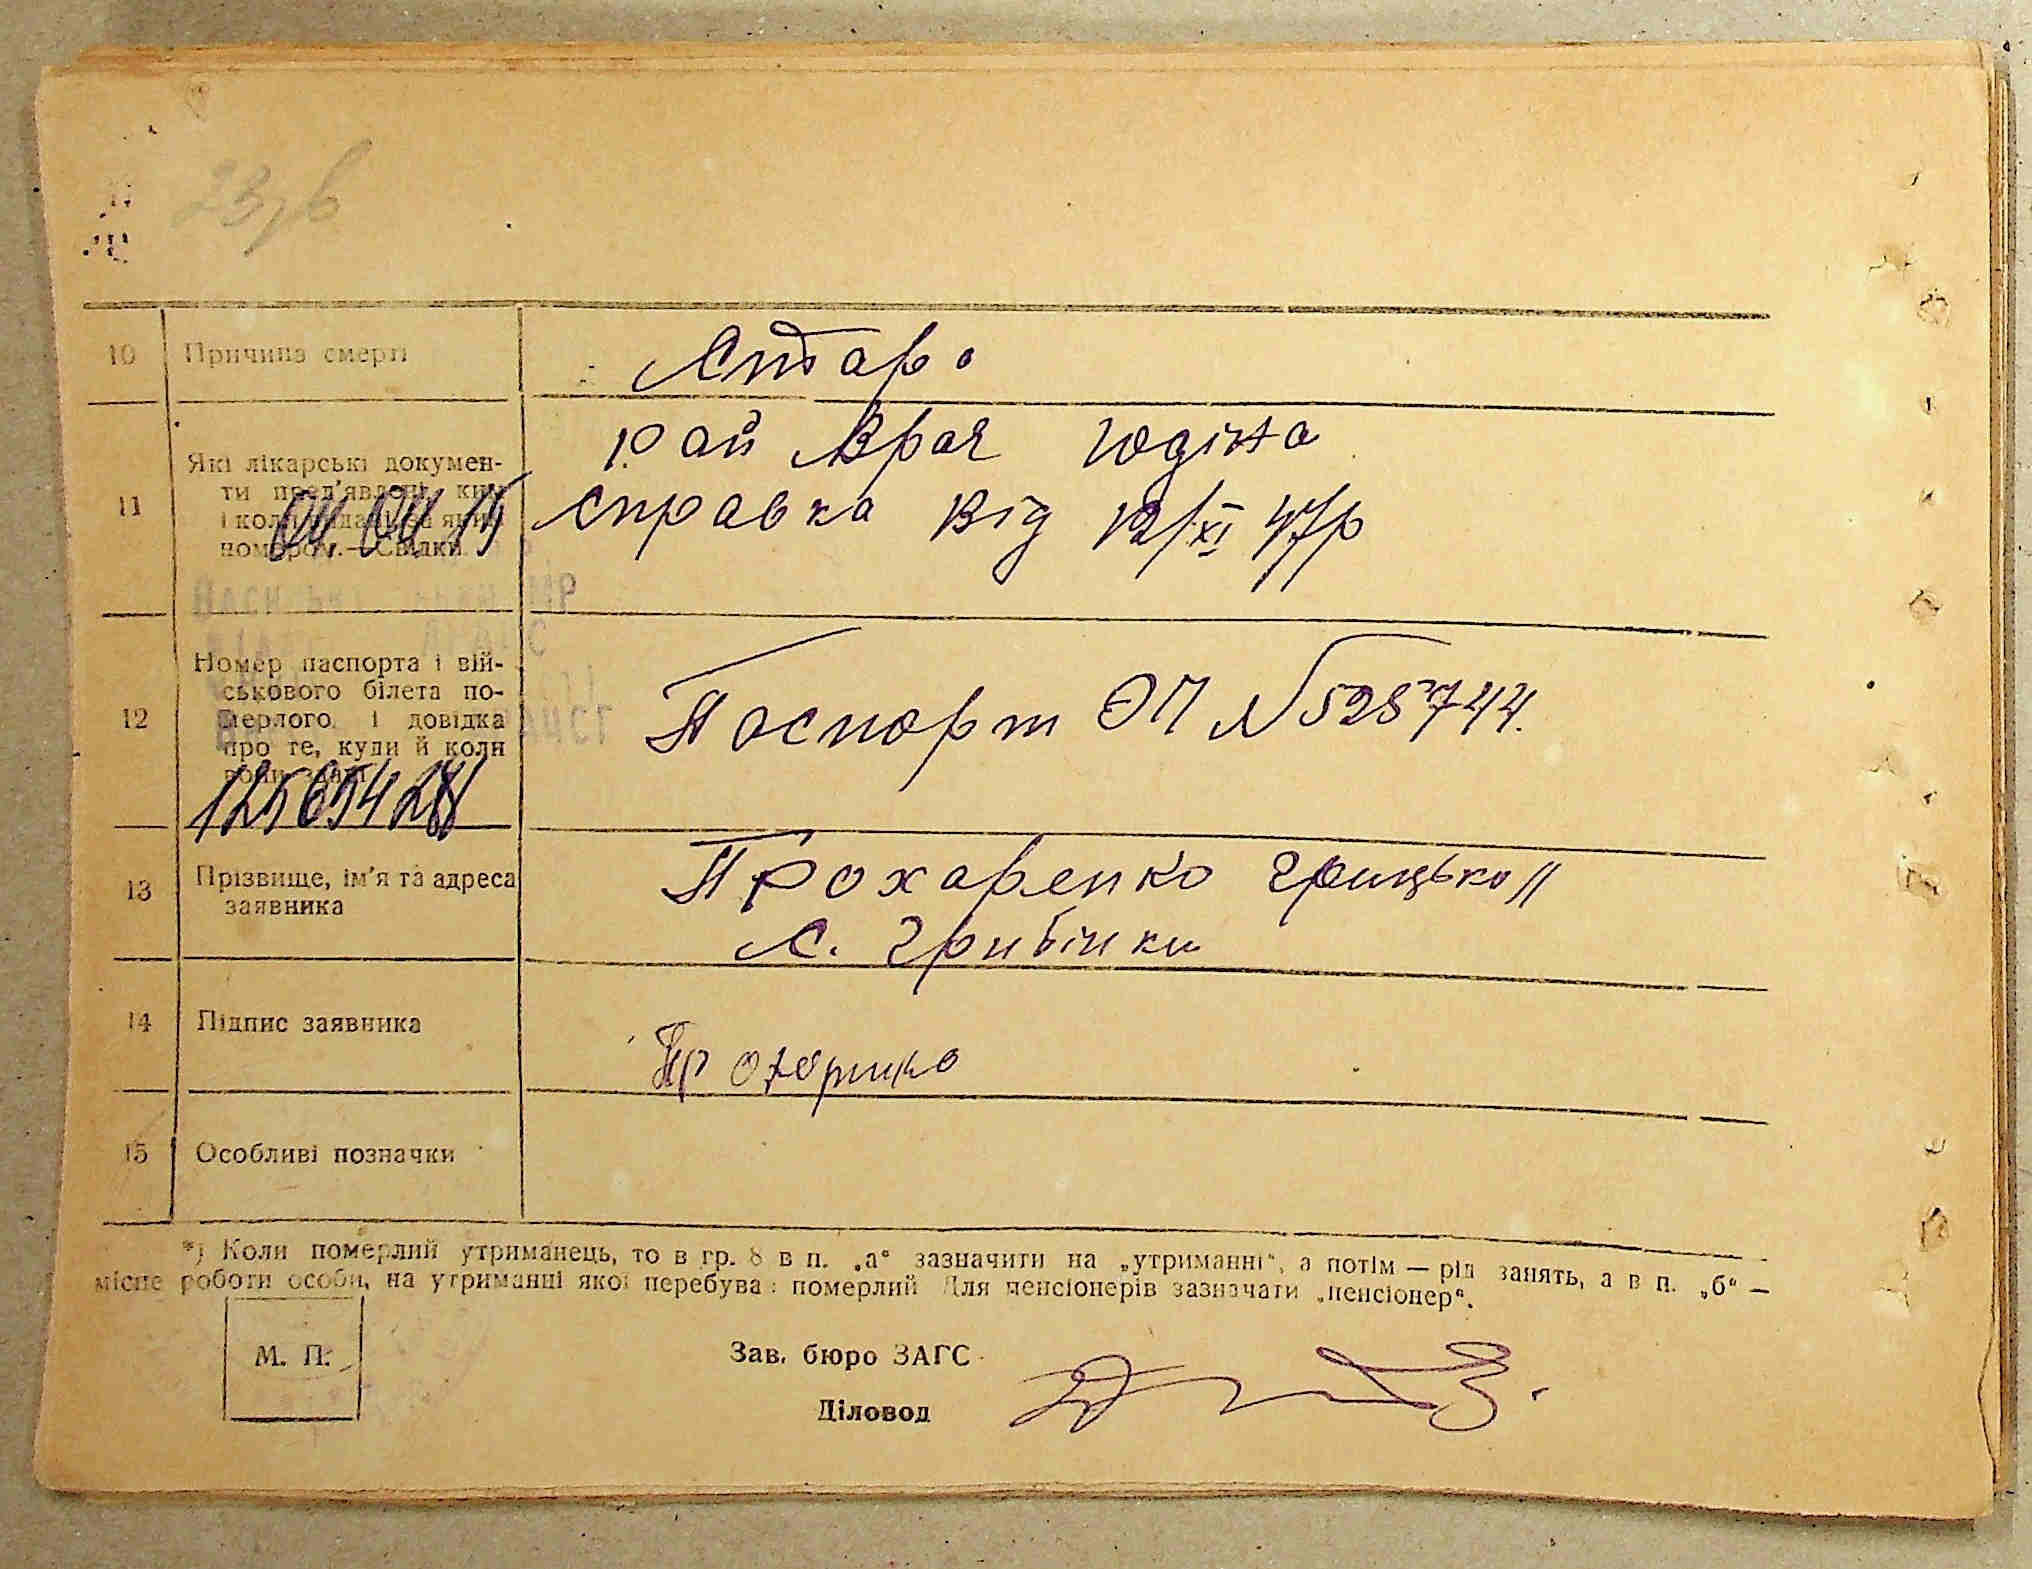 23, в
10 Причина смерті
Стар.
11 Які лікарські докумен-
ти пред'явлені, ким
і коли видані за яким
номером.— Свідки
рай Врач Юдіна
справка Від 12/XI 47р
12 Номер паспорта і вій-
ськового білета по-
мерлого і довідка
про те, куди й коли
вони здані
Паспорт ЭП № 528744.
13 Прізвище, ім'я та адреса
заявника
Прохаренко Грицько
С. Грибінки
14 Підпис заявника
15 Особливі позначки
*) Коли померлий утриманець, то в гр. 8 в п. „а“ зазначити на „утриманні“, а потім — рід занять, а в п. „б“ —
місце роботи особи, на утриманні якої перебував померлий Для пенсіонерів зазначати „пенсіонер“.
М. П.
Зав. бюро ЗАГС
Діловод